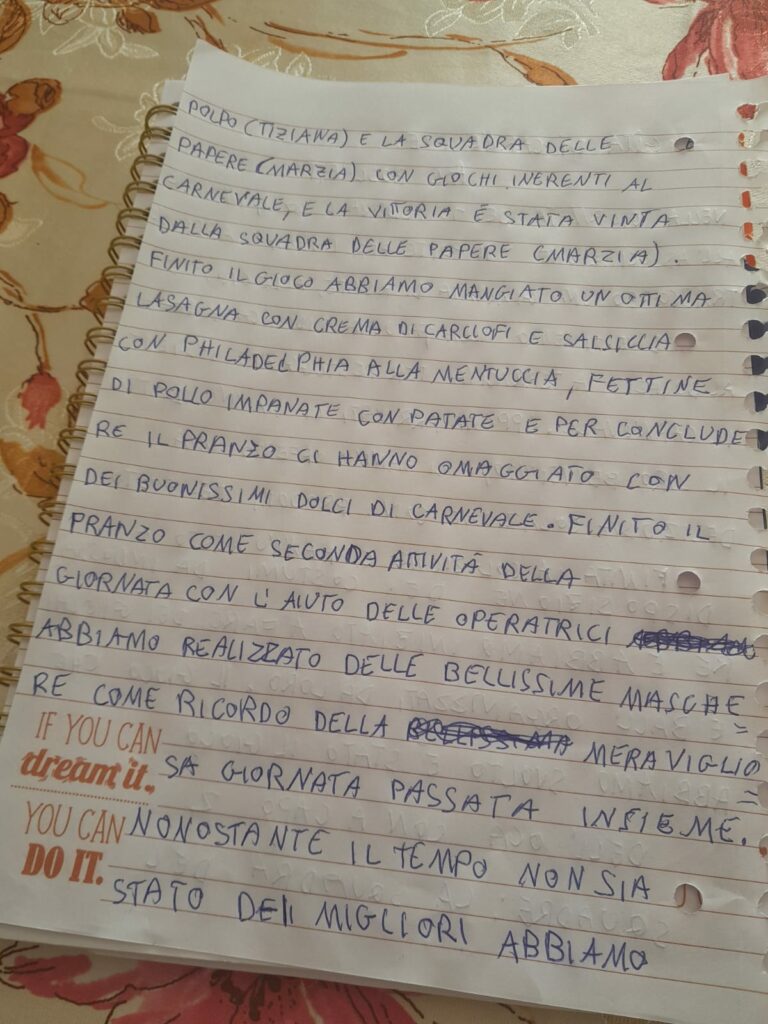 POLPO (TIZIANA) E LA SQUADRA DELLE
PAPERE (MARZIA) CON GIOCHI INERENTI AL
CARNEVALE, E LA VITTORIA È STATA VINTA
DALLA SQUADRA DELLE PAPERE (MARZIA).
FINITO IL GIOCO ABBIAMO MANGIATO UN OTTIMA
LASAGNA CON CREMA DI CARCIOFI E SALSICCIA
CON PHILADELPHIA ALLA MENTUCCIA, FETTINE
DI POLLO IMPANATE CON PATATE E PER CONCLUDE
RE IL PRANZO CI HANNO OMAGGIATO CON
DEI BUONISSIMI DOLCI DI CARNEVALE. FINITO IL
PRANZO COME SECONDA ATTIVITÁ DELLA
GIORNATA CON L'AIUTO DELLE OPERATRICI
ABBIAMO REALIZZATO DELLE BELLISSIME MASCHE=
RE COME RICORDO DELLA MERAVIGLIO=
SA GIORNATA PASSATA INSIEME.
NONOSTANTE IL TEMPO NON SIA
STATO DEI MIGLIORI ABBIAMO
IF YOU CAN
dream it,
YOU CAN
DO IT.